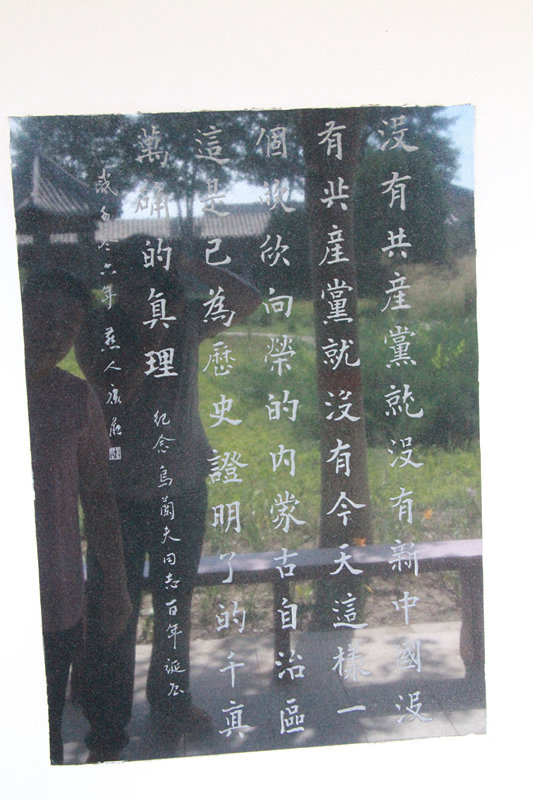 没有共産黨就没有新中國没
有共産黨就没有今天這樣一
個欣欣向榮的内蒙古自治區
這是已為歷史證明了的千真
萬確的真理
紀念烏蘭夫同志百年誕辰
零六年